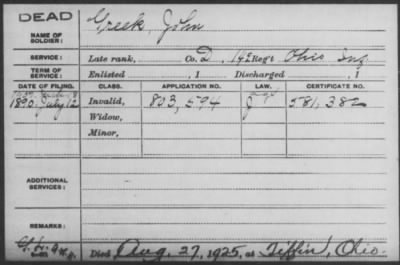 DEAD
NAME OF SOLDIER: Greek, John
SERVICE: Late rank, Co. D, 142 Reg't Ohio Inf
TERM OF SERVICE: Enlisted , 1 Discharged , 1
DATE OF FILING. CLASS. APPLICATION NO. LAW. CERTIFICATE NO.
1890. July 12 Invalid, 803,594 581,382
Widow,
Minor,
ADDITIONAL SERVICES:
REMARKS:
Died Aug. 27, 1925, at Tiffin, Ohio.